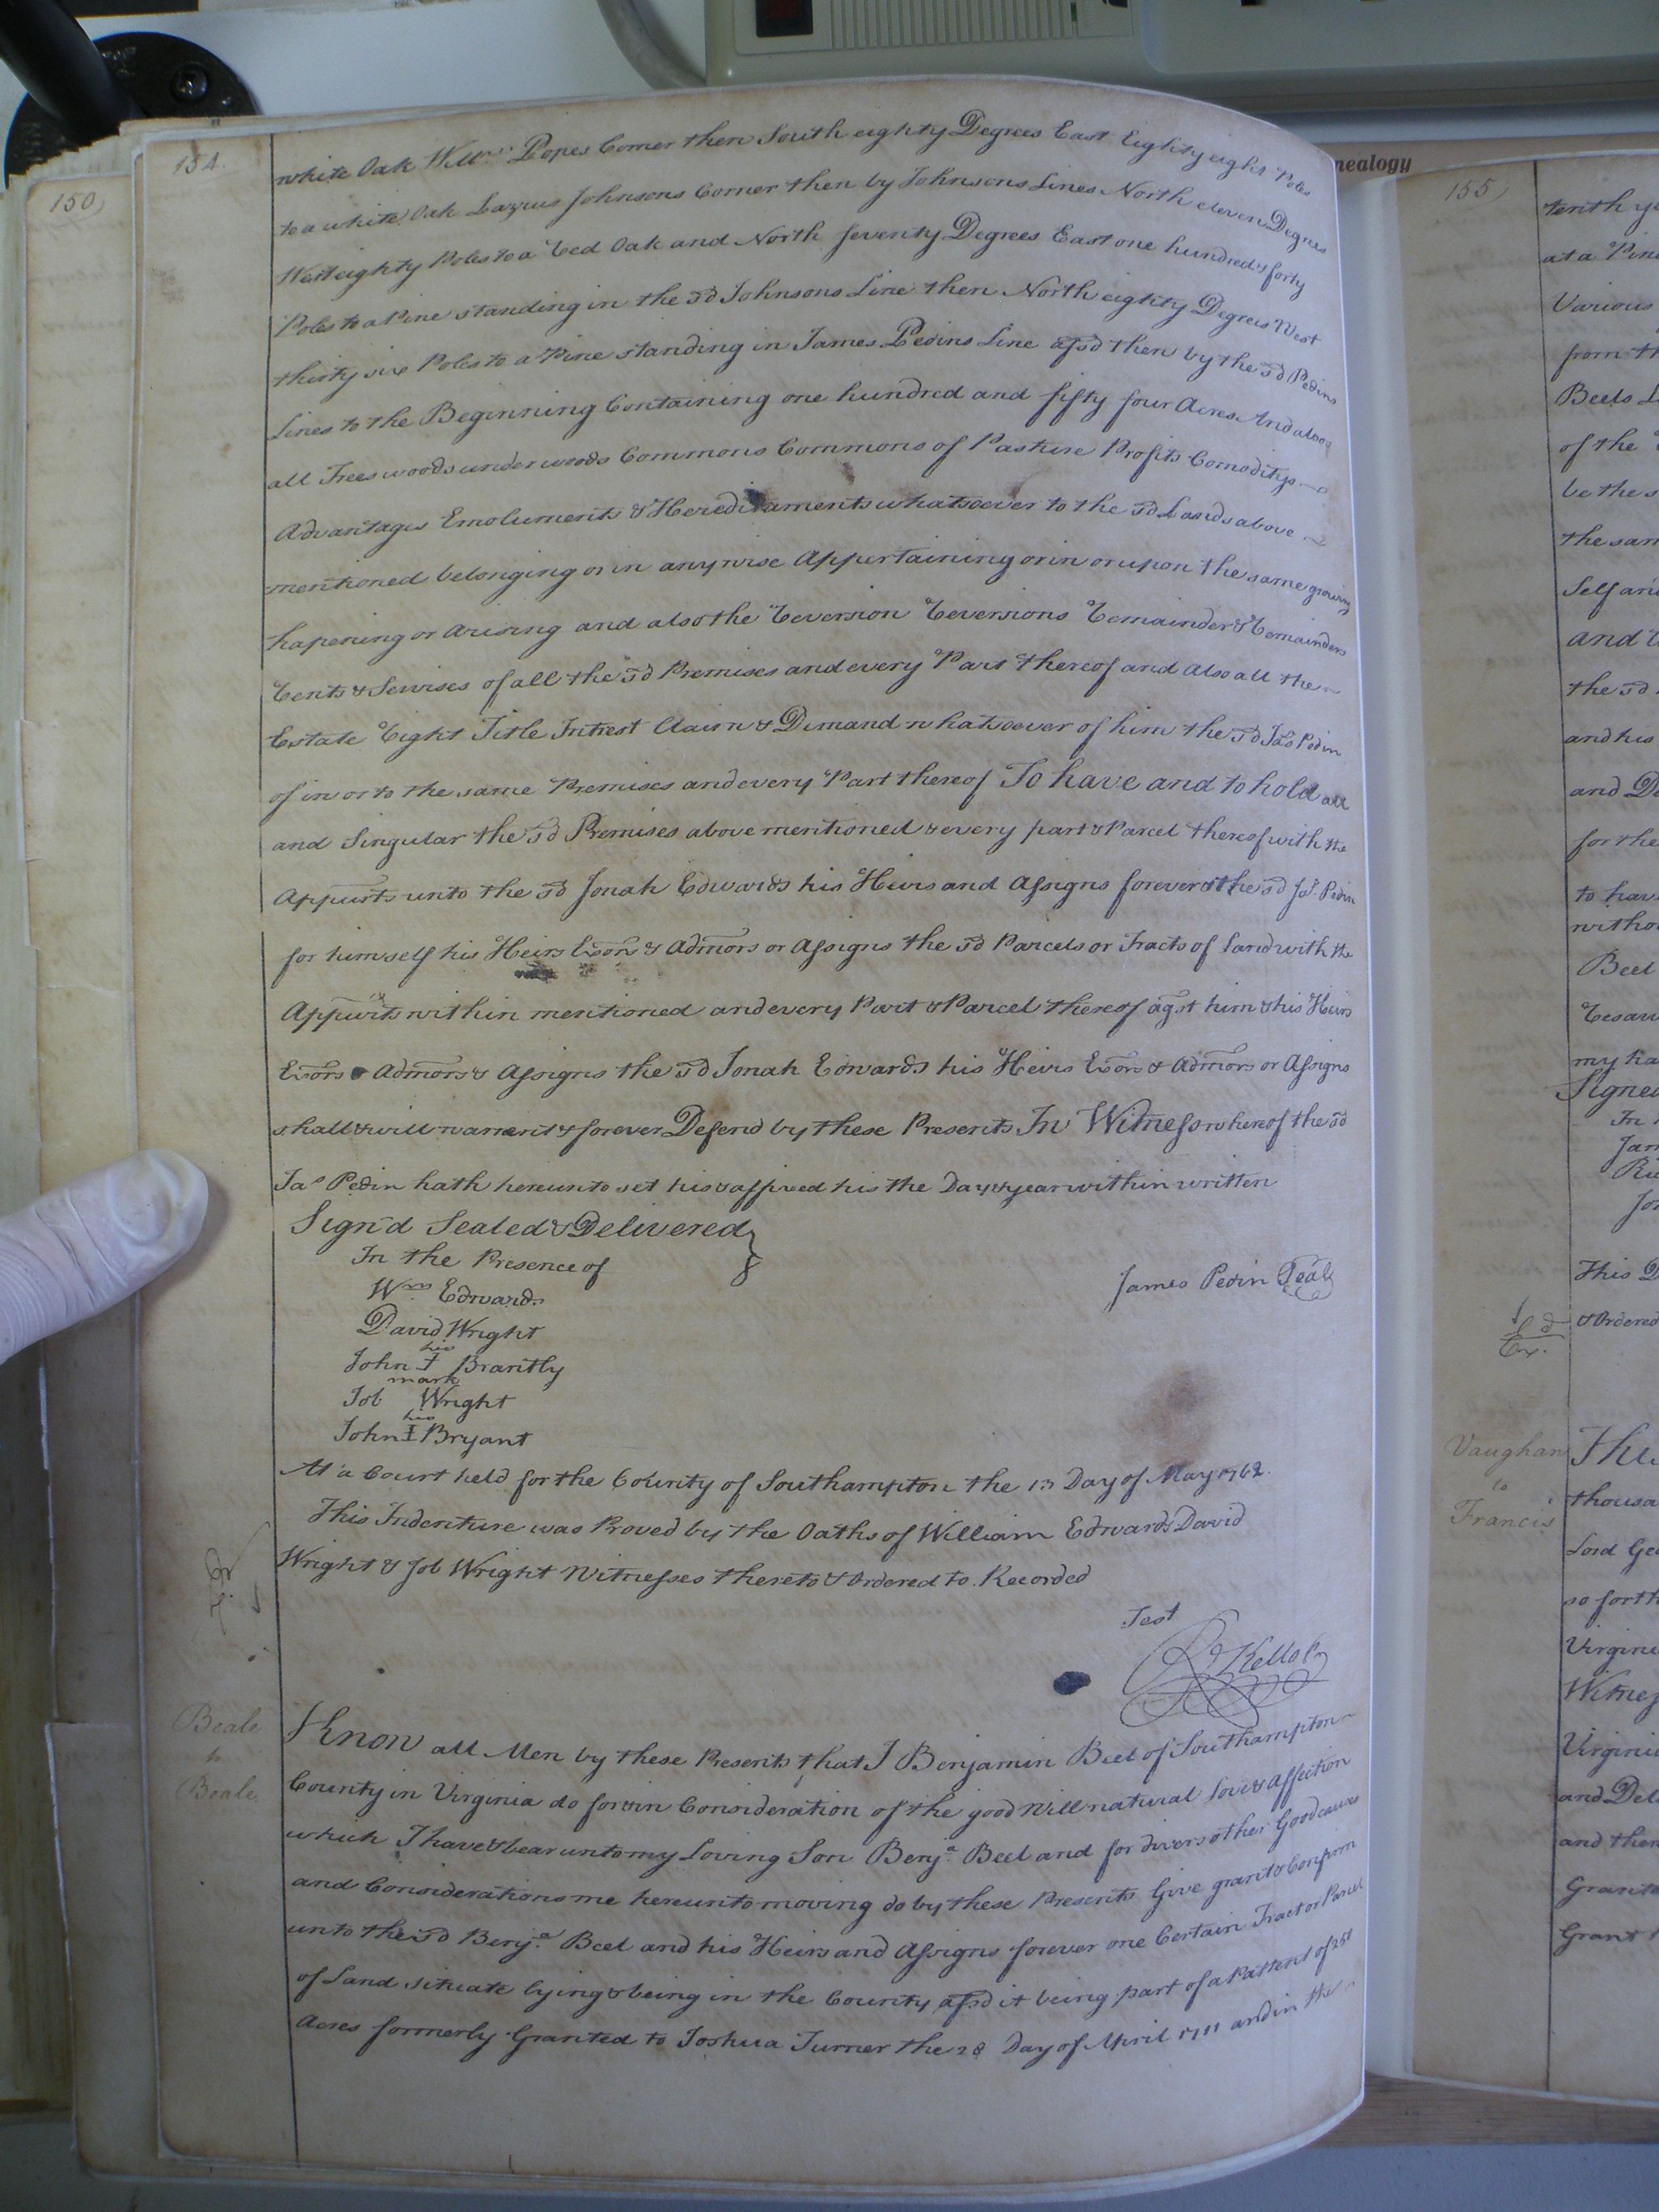 150
154.
white Oak Willms. Popes Corner then South eighty Degrees East Eighty eight Poles
to a white Oak Lazrus Johnsons Corner then by Johnsons Lines North eleven Degrees
West eighty Poles to a Red Oak and North seventy Degrees East one hundred & forty
Poles to a Pine standing in the sd Johnsons Line then North eighty Degrees West
thirty six Poles to a Pine standing in James Pedins Line afsd then by the sd Pedins
Lines to the Beginning Containing one hundred and fifty four Acres And also
all Trees woods under woods Commons Commons of Pasture Profits Comoditys
Advantages Emoluments & Hereditaments whatsoever to the sd Lands above
mentioned belonging or in anywise Appertaining or in or upon the same growing
hapening or Arising and also the Reversion Reversions Remainder & Remainders
Rents & Servises of all the sd Premises and every Part thereof and Also all the
Estate Right Title Intrest Claim & Demand whatsoever of him the sd Jas Pedin
of in or to the same Premises and every Part thereof To have and to hold all
and Singular the sd Premises above mentioned & every part & Parcel thereof with the
Appurts unto the sd Jonah Edwards his Heirs and Assigns forever & the sd Jas. Pedin
for himself his Heirs Exors & Admors or Assigns the sd Parcels or Tracts of Land with the
Appurts within mentioned and every Part & Parcel thereof agst him & his Heirs
Exors & Admors & Assigns the sd Jonah Edwards his Heirs Exors & Admors or Assigns
shall & will warrent & forever Defend by these Presents In Witness whereof the sd
Jas Pedin hath hereunto set his & affixed his the Day & year within written
Sign'd Sealed & Delivered
In the Presence of
James Pedin Seal
Wm Edwards
David Wright
his
John I Brantly
mark
Job Wright
his
John I Bryant
At a Court held for the County of Southampton the 13 Day of May 1762.
This Indenture was Proved by the Oaths of William Edwards David
Wright & Job Wright Witnesses thereto & Ordered to Recorded
Test
Kello
Beale
to
Beale
Know all Men by these Presents that I Benjamin Beel of Southampton
County in Virginia do for & in Consideration of the good Will natural Love & Affection
which I have & bear unto my Loving Son Benja. Beel and for divers other Good causes
and Considerations me hereunto moving do by these Presents Give grant & Confirm
unto the sd Benja. Beel and his Heirs and Assigns forever one Certain Tract or Parcel
of Land situate lying & being in the County afsd it being part of a Pattent of 251
Acres formerly Granted to Joshua Turner the 28 Day of April 1711 and in the
nealogy
155
tenth
at a Pine
Various
from
Beels
of the
be the
the
Self and
and
the sd
and his
and
for the
to have
Beel
my
Signed
In
This
& Ordered
Vaughan
to
Francis
thousa
Lord
so forth
Virginia
Witness
Virginia
and Del
and then
Grant